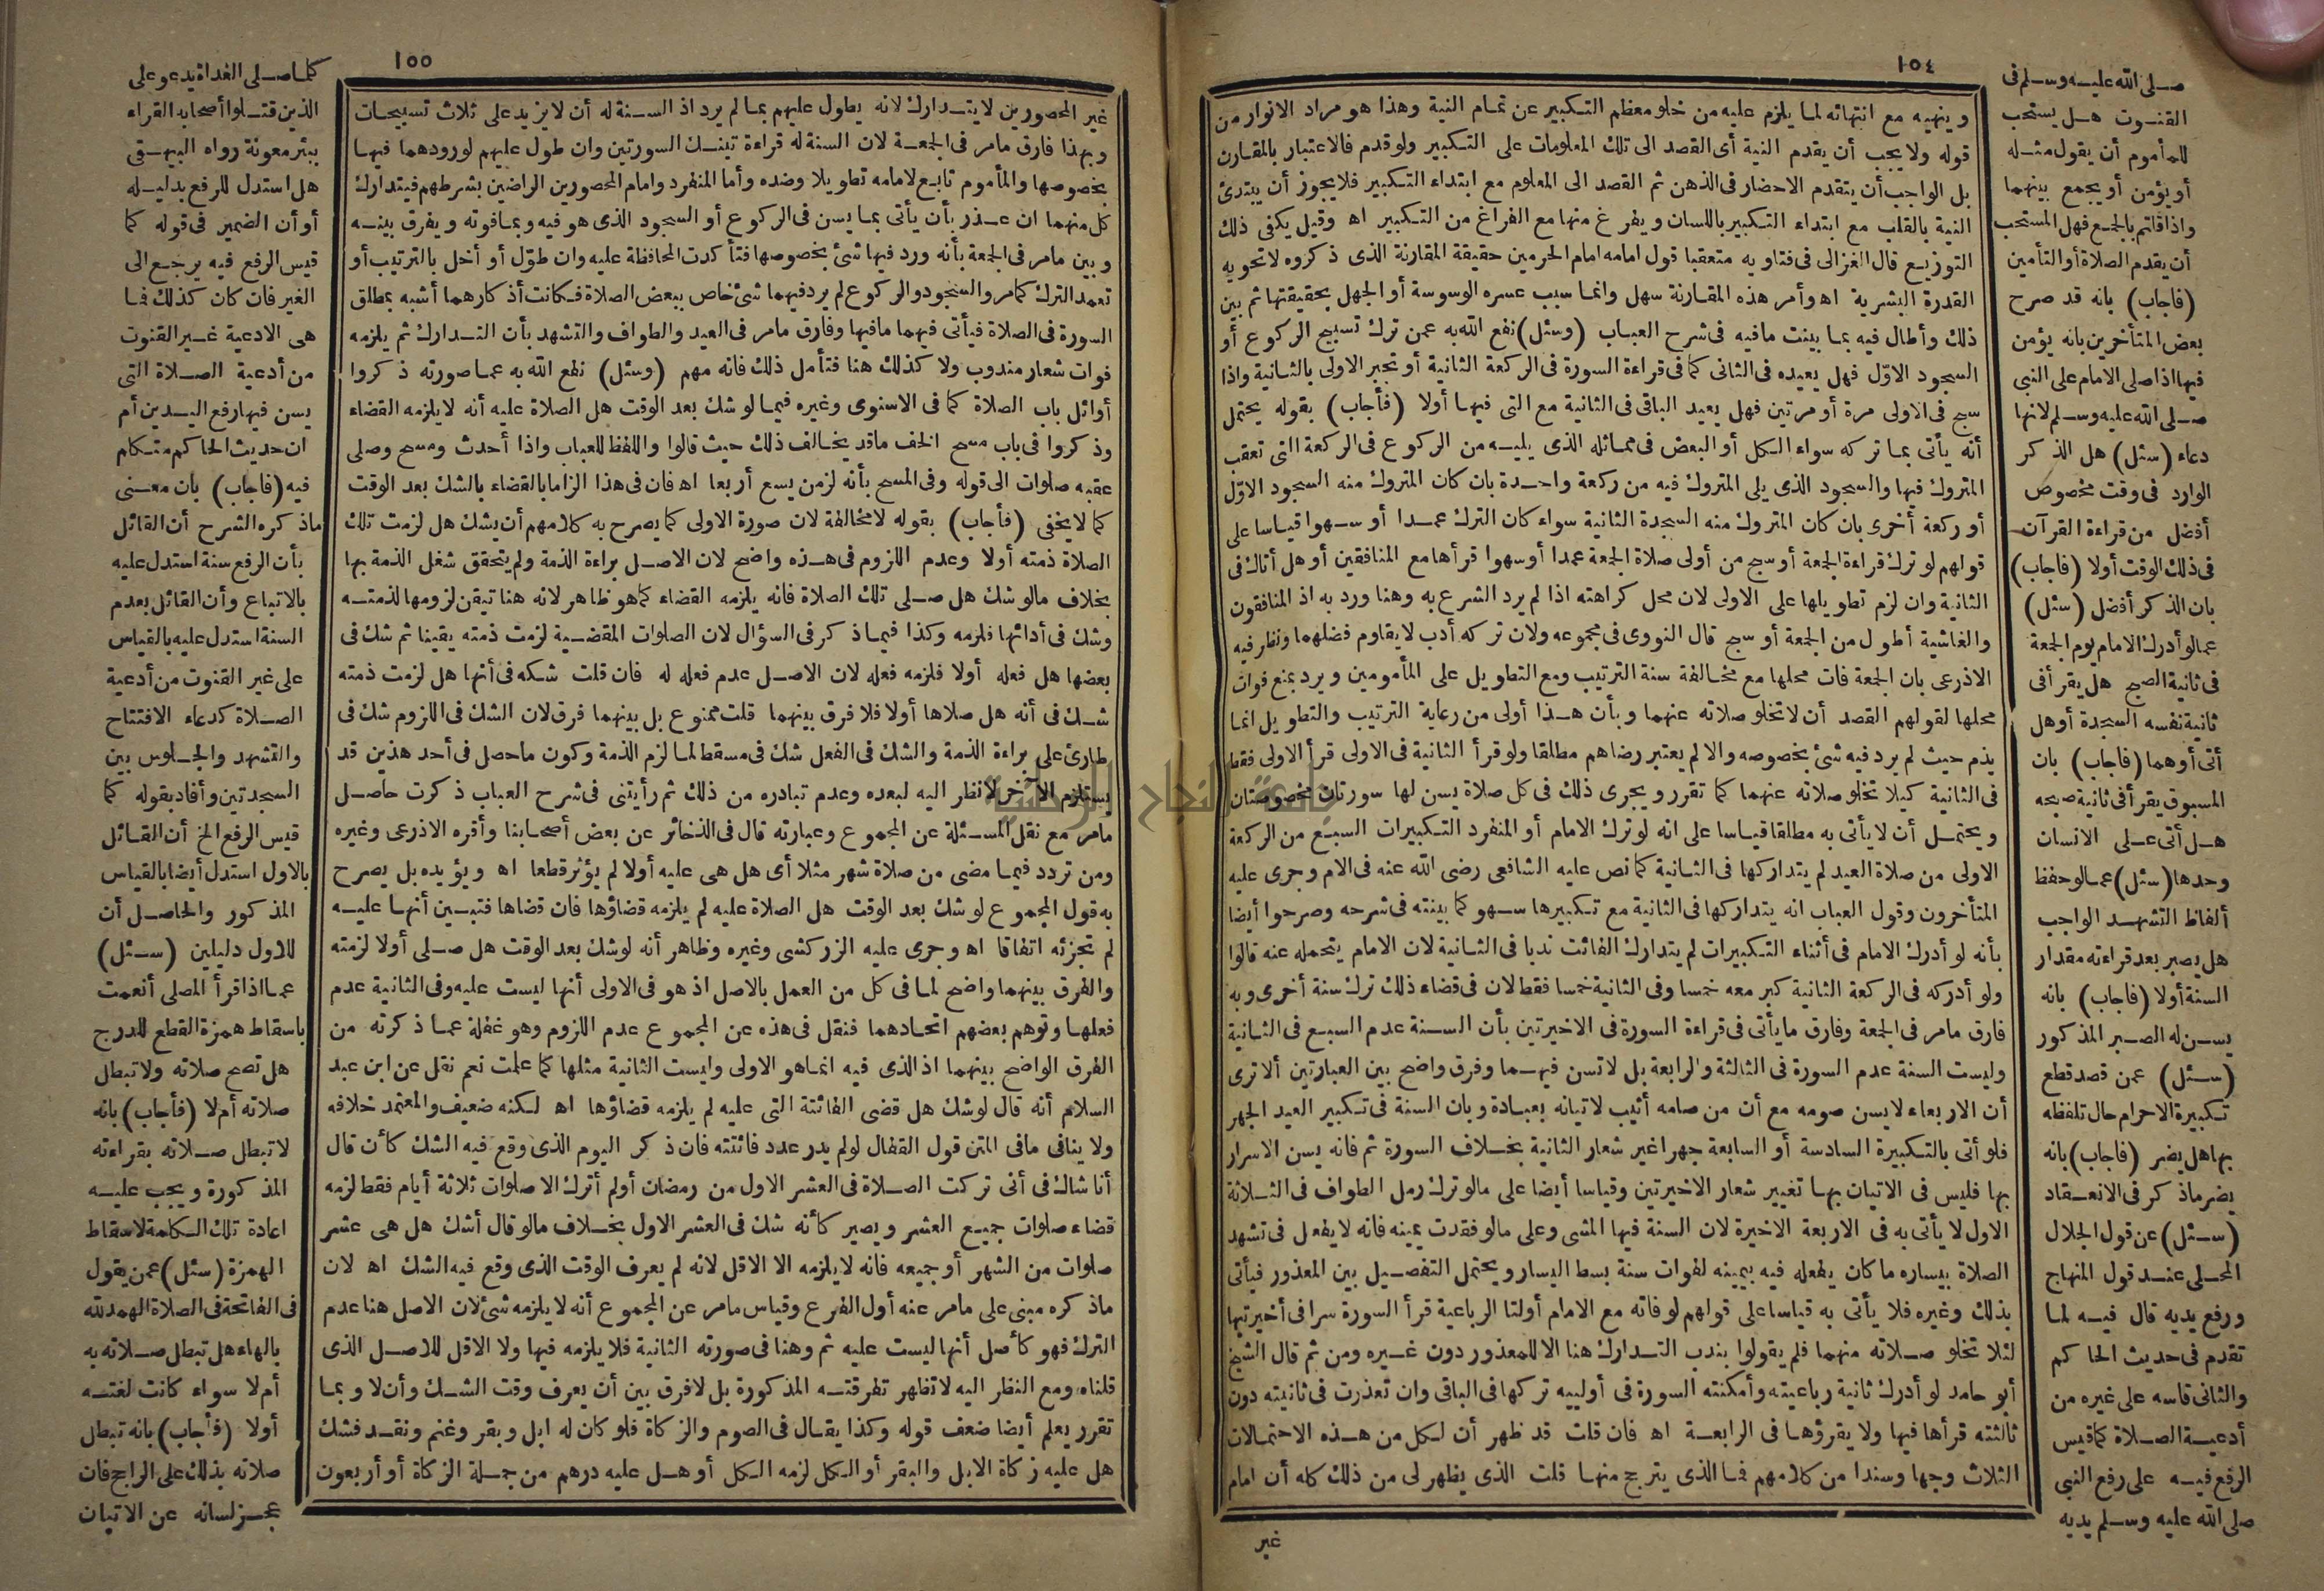 ١٥٤
وينهيه مع انتهائه لما يلزم عليه من خلو معظم التكبير عن تمام النية وهذا هو مراد الانوار من
قوله ولا يجب أن يقدم النية أى القصد الى تلك المعلومات على التكبير ولو قدم فالاعتبار بالمقارن
بل الواجب أن يتقدم الاحضار فى الذهن ثم القصد الى المعلوم مع ابتداء التكبير فلا يجوز أن يبتدئ
النية بالقلب مع ابتداء التكبير باللسان ويفرغ منها مع الفراغ من التكبير اه وقيل يكفى ذلك
التوزيع قال الغزالى فى فتاويه متعقبا قول امامه امام الحرمين حقيقة المقارنة الذى ذكروه لا تحويه
القدرة البشرية اه وأمر هذه المقارنة سهل وانما سبب عسره الوسوسة أو الجهل بحقيقتها ثم بين
ذلك وأطال فيه بما بينت مافيه فى شرح العباب (وسئل) نفع الله به عمن ترك تسبيح الركوع أو
السجود الاوّل فهل يعيده فى الثانى كما فى قراءة السورة فى الركعة الثانية أو تجبر الاولى بالثانية واذا
سبح فى الاولى مرة أو مرتين فهل يعيد الباقى فى الثانية مع التى فيها أولا (فأجاب) بقوله يحتمل
أنه يأتى بما تركه سواء الكل أو البعض فى مماثله الذى يليه من الركوع فى الركعة التى تعقب
المتروك فيها والسجود الذى يلى المتروك فيه من ركعة واحدة بان كان المتروك منه السجود الاوّل
أو ركعة أخرى بان كان المتروك منه السجدة الثانية سواء كان الترك عمدا أو سهوا قياسا على
قولهم لو ترك قراءة الجمعة أو سبح من أولى صلاة الجمعة عمدا أو سهوا قرأها مع المنافقين أو هل أتاك فى
الثانية وان لزم تطويلها على الاولى لان محل كراهته اذا لم يرد الشرع به وهنا ورد به اذ المنافقون
والغاشية أطول من الجمعة أو سبح قال النووى فى مجموعه ولان تركه أدب لا يقاوم فضلهما ونظر فيه
الاذرعى بان الجمعة فات محلها مع مخالفة سنة الترتيب ومع التطويل على المأمومين ويرد بمنع فوات
محلها لقولهم القصد أن لا تخلو صلاته عنهما وبأن هذا أولى من رعاية الترتيب والتطويل انما
يذم حيث لم يرد فيه شئ بخصوصه والا لم يعتبر رضاهم مطلقا ولو قرأ الثانية فى الاولى قرأ الاولى فقط
فى الثانية كيلا تخلو صلاته عنهما كما تقرر ويجرى ذلك فى كل صلاة يسن لها سورتان مخصوصتان
ويحتمل أن لا يأتى به مطلقا قياسا على انه لو ترك الامام أو المنفرد التكبيرات السبع من الركعة
الاولى من صلاة العيد لم يتداركها فى الثانية كما نص عليه الشافعى رضى الله عنه فى الام وجرى عليه
المتأخرون وقول العباب انه يتداركها فى الثانية مع تكبيرها سهو كما بينته فى شرحه وصرحوا أيضا
بأنه لو أدرك الامام فى أثناء التكبيرات لم يتدارك الفائت ندبا فى الثانية لان الامام يتحمله عنه قالوا
ولو أدركه فى الركعة الثانية كبر معه خمسا وفى الثانية خمسا فقط لان فى قضاء ذلك ترك سنة أخرى وبه
فارق مامر فى الجمعة وفارق ما يأتى فى قراءة السورة فى الاخيرتين بأن السنة عدم السبع فى الثانية
وليست السنة عدم السورة فى الثالثة والرابعة بل لا تسن فيهما وفرق واضح بين العبارتين ألا ترى
أن الاربعاء لا يسن صومه مع أن من صامه أثيب لا تيانه بعبادة وبان السنة فى تكبير العيد الجهر
فلو أتى بالتكبيرة السادسة أو السابعة جهرا غير شعار الثانية بخلاف السورة ثم فانه يسن الاسرار
بها فليس فى الاتيان بها تغيير شعار الاخيرتين وقياسا أيضا على مالو ترك رمل الطواف فى الثلاثة
الاول لا يأتى به فى الاربعة الاخيرة لان السنة فيها المشى وعلى مالو فقدت يمينه فانه لا يفعل فى تشهد
الصلاة بيساره ما كان يفعله فيه بيمينه لفوات سنة بسط اليسار ويحتمل التفصيل بين المعذور فيأتى
بذلك وغيره فلا يأتى به قياسا على قولهم لو فاته مع الامام أولتا الرباعية قرأ السورة سرا فى أخيرتيها
لئلا تخلو صلاته منهما فلم يقولوا بندب التدارك هنا الا للمعذور دون غيره ومن ثم قال الشيخ
أبو حامد لو أدرك ثانية رباعيته وأمكنته السورة فى أولييه تركها فى الباقى وان تعذرت فى ثانيته دون
ثالثته قرأها فيها ولا يقرؤها فى الرابعة اه فان قلت قد ظهر أن لكل من هذه الاحتمالات
الثلاث وجها وسندا من كلامهم فما الذى يترجح منها قلت الذى يظهر لى من ذلك كله أن امام
غير
صلى الله عليه وسلم فى
القنوت هل يستحب
للمأموم أن يقول مثله
أو يؤمن أو يجمع بينهما
واذا قلتم بالجمع فهل المستحب
أن يقدم الصلاة أو التأمين
(فأجاب) بانه قد صرح
بعض المتأخرين بانه يؤمن
فيها اذا صلى الامام على النبى
صلى الله عليه وسلم لانها
دعاء (سئل) هل الذكر
الوارد فى وقت مخصوص
أفضل من قراءة القرآن
فى ذلك الوقت أولا (فاجاب)
بان الذكر أفضل (سئل)
عمالو أدرك الامام يوم الجمعة
فى ثانية الصبح هل يقرأ فى
ثانية نفسه السجدة أو هل
أتى أوهما (فأجاب) بان
المسبوق يقرأ فى ثانية صبحه
هل أتى على الانسان
وحدها (سئل) عمالو حفظ
ألفاظ التشهد الواجب
هل يصبر بعد قراءته مقدار
السنة أولا (فأجاب) بانه
يسن له الصبر المذكور
(سئل) عمن قصد قطع
تكبيرة الاحرام حال تلفظه
بها هل يضر (فاجاب) بانه
يضر ماذكر فى الانعقاد
(سئل) عن قول الجلال
المحلى عند قول المنهاج
ورفع يديه قال فيه لما
تقدم فى حديث الحاكم
والثانى قاسه على غيره من
أدعية الصلاة كما قيس
الرفع فيه على رفع النبى
صلى الله عليه وسلم يديه
١٥٥
غير المحصورين لا يتدارك لانه يطول عليهم بما لم يرد اذ السنة له أن لا يزيد على ثلاث تسبيحات
وبهذا فارق مامر فى الجمعة لان السنة له قراءة تينك السورتين وان طول عليهم لورودهما فيها
بخصوصها والمأموم تابع لامامه تطويلا وضده وأما المنفرد وامام المحصورين الراضين بشرطهم فيتدارك
كل منهما ان عذر بأن يأتى بما يسن فى الركوع أو السجود الذى هو فيه وبما فوته ويفرق بينه
وبين مامر فى الجمعة بأنه ورد فيها شئ بخصوصها فتأكدت المحافظة عليه وان طوّل أو أخل بالترتيب أو
تعمد الترك كمامر والسجود والركوع لم يرد فيهما شئ خاص ببعض الصلاة فكانت أذكارهما أشبه بمطلق
السورة فى الصلاة فيأتى فيهما مافيها وفارق مامر فى العيد والطواف والتشهد بأن التدارك ثم يلزمه
فوات شعار مندوب ولا كذلك هنا فتأمل ذلك فانه مهم (وسئل) نفع الله به عما صورته ذكروا
أوائل باب الصلاة كما فى الاسنوى وغيره فيما لو شك بعد الوقت هل الصلاة عليه أنه لا يلزمه القضاء
وذكروا فى باب مسح الخف ماقد يخالف ذلك حيث قالوا واللفظ للعباب واذا أحدث ومسح وصلى
عقبه صلوات الى قوله وفى المسح بأنه لزمن يسع أربعا اه فان فى هذا الزاما بالقضاء بالشك بعد الوقت
كما لا يخفى (فأجاب) بقوله لا مخالفة لان صورة الاولى كما يصرح به كلامهم أن يشك هل لزمت تلك
الصلاة ذمته أولا وعدم اللزوم فى هذه واضح لان الاصل براءة الذمة ولم يتحقق شغل الذمة بها
بخلاف مالو شك هل صلى تلك الصلاة فانه يلزمه القضاء كما هو ظاهر لانه هنا تيقن لزومها لذمته
وشك فى أدائها فلزمه وكذا فيما ذكر فى السؤال لان الصلوات المقضية لزمت ذمته يقينا ثم شك فى
بعضها هل فعله أولا فلزمه فعله لان الاصل عدم فعله له فان قلت شكه فى أنها هل لزمت ذمته
شك فى أنه هل صلاها أولا فلا فرق بينهما قلت ممنوع بل بينهما فرق لان الشك فى اللزوم شك فى
طارئ على براءة الذمة والشك فى الفعل شك فى مسقط لما لزم الذمة وكون ماحصل فى أحد هذين قد
يستلزم الآخر لا نظر اليه لبعده وعدم تبادره من ذلك ثم رأيتنى فى شرح العباب ذكرت حاصل
مامر مع نقل المسئلة عن المجموع وعبارته قال فى الذخائر عن بعض أصحابنا وأقره الاذرعى وغيره
ومن تردد فيما مضى من صلاة شهر مثلا أى هل هى عليه أولا لم يؤثر قطعا اه ويؤيده بل يصرح
به قول المجموع لو شك بعد الوقت هل الصلاة عليه لم يلزمه قضاؤها فان قضاها فتبين أنها عليه
لم تجزئه اتفاقا اه وجرى عليه الزركشى وغيره وظاهر أنه لو شك بعد الوقت هل صلى أولا لزمته
والفرق بينهما واضح لما فى كل من العمل بالاصل اذ هو فى الاولى أنها ليست عليه وفى الثانية عدم
فعلها وتوهم بعضهم اتحادهما فنقل فى هذه عن المجموع عدم اللزوم وهو غفلة عما ذكرته من
الفرق الواضح بينهما اذ الذى فيه انما هو الاولى وليست الثانية مثلها كما علمت نعم نقل عن ابن عبد
السلام أنه قال لو شك هل قضى الفائتة التى عليه لم يلزمه قضاؤها اه لكنه ضعيف والمعتمد خلافه
ولا ينافى مافى المتن قول القفال لو لم يدر عدد فائتته فان ذكر اليوم الذى وقع فيه الشك كأن قال
أنا شاك فى أنى تركت الصلاة فى العشر الاول من رمضان أولم أترك الا صلوات ثلاثة أيام فقط لزمه
قضاء صلوات جميع العشر ويصير كأنه شك فى العشر الاول بخلاف مالو قال أشك هل هى عشر
صلوات من الشهر أو جميعه فانه لا يلزمه الا الاقل لانه لم يعرف الوقت الذى وقع فيه الشك اه لان
ماذكره مبنى على مامر عنه أول الفرع وقياس مامر عن المجموع أنه لا يلزمه شئ لان الاصل هنا عدم
الترك فهو كأصل أنها ليست عليه ثم وهنا فى صورته الثانية فلا يلزمه فيها ولا الاقل للاصل الذى
قلناه ومع النظر اليه لا تظهر تفرقته المذكورة بل لا فرق بين أن يعرف وقت الشك وأن لا وبما
تقرر يعلم أيضا ضعف قوله وكذا يقال فى الصوم والزكاة فلو كان له ابل وبقر وغنم ونقد فشك
هل عليه زكاة الابل والبقر أو الكل لزمه الكل أو هل عليه درهم من جملة الزكاة أو أربعون
كلما صلى الغداة يدعو على
الذين قتلوا أصحابه القراء
ببئر معونة رواه البيهقى
هل استدل للرفع بدليله
أو أن الضمير فى قوله كما
قيس الرفع فيه يرجع الى
الغير فان كان كذلك فما
هى الادعية غير القنوت
من أدعية الصلاة التى
يسن فيها رفع اليدين أم
ان حديث الحاكم متكلم
فيه (فاجاب) بان معنى
ماذكره الشرح أن القائل
بأن الرفع سنة استدل عليه
بالاتباع وأن القائل بعدم
السنة استدل عليه بالقياس
على غير القنوت من أدعية
الصلاة كدعاء الافتتاح
والتشهد والجلوس بين
السجدتين وأفاد بقوله كما
قيس الرفع الخ أن القائل
بالاول استدل أيضا بالقياس
المذكور والحاصل أن
للاول دليلين (سئل)
عما اذا قرأ المصلى أنعمت
باسقاط همزة القطع للدرج
هل تصح صلاته ولا تبطل
صلاته أم لا (فأجاب) بانه
لا تبطل صلاته بقراءته
المذكورة ويجب عليه
اعادة تلك الكلمة لاسقاط
الهمزة (سئل) عمن يقول
فى الفاتحة فى الصلاة الهمد لله
بالهاء هل تبطل صلاته به
أم لا سواء كانت لغته
أولا (فأجاب) بانه تبطل
صلاته بذلك على الراجح فان
عجز لسانه عن الاتيان